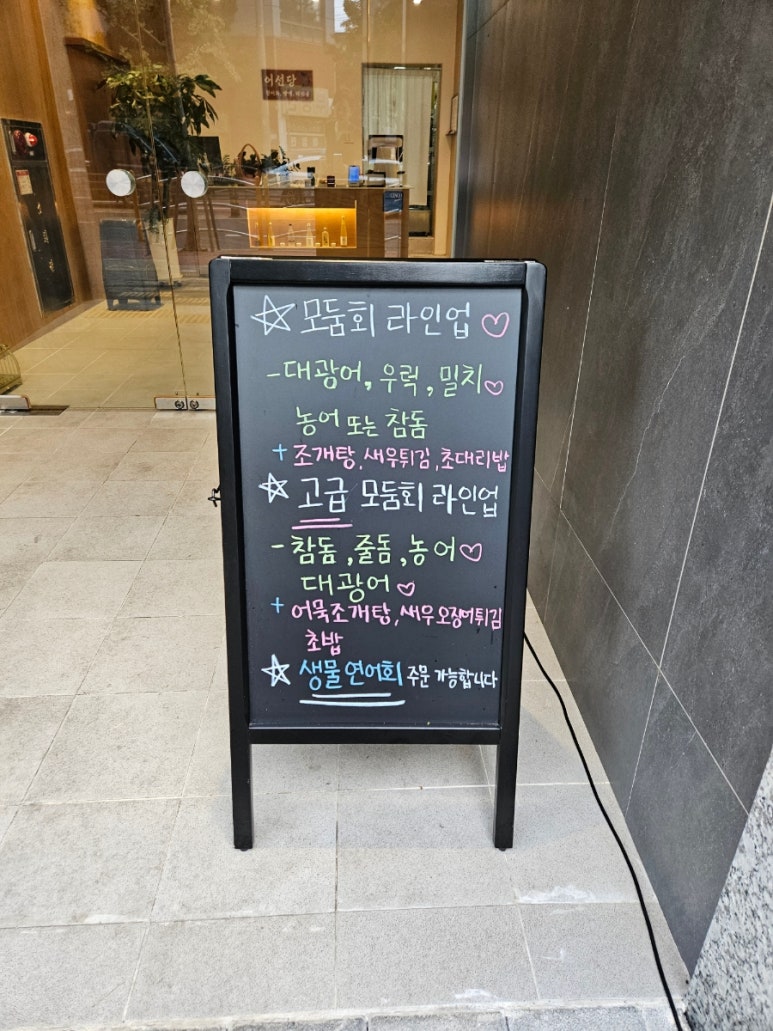 어선당
☆ 모둠회 라인업 ♡
- 대광어, 우럭, 밀치 ♡
농어 또는 참돔
+ 조개탕, 새우튀김, 초대리밥
☆ 고급 모둠회 라인업
- 참돔, 줄돔, 농어 ♡
대광어 ♡
+ 어묵조개탕, 새우오징어튀김
초밥
☆ 생물연어회 주문 가능합니다